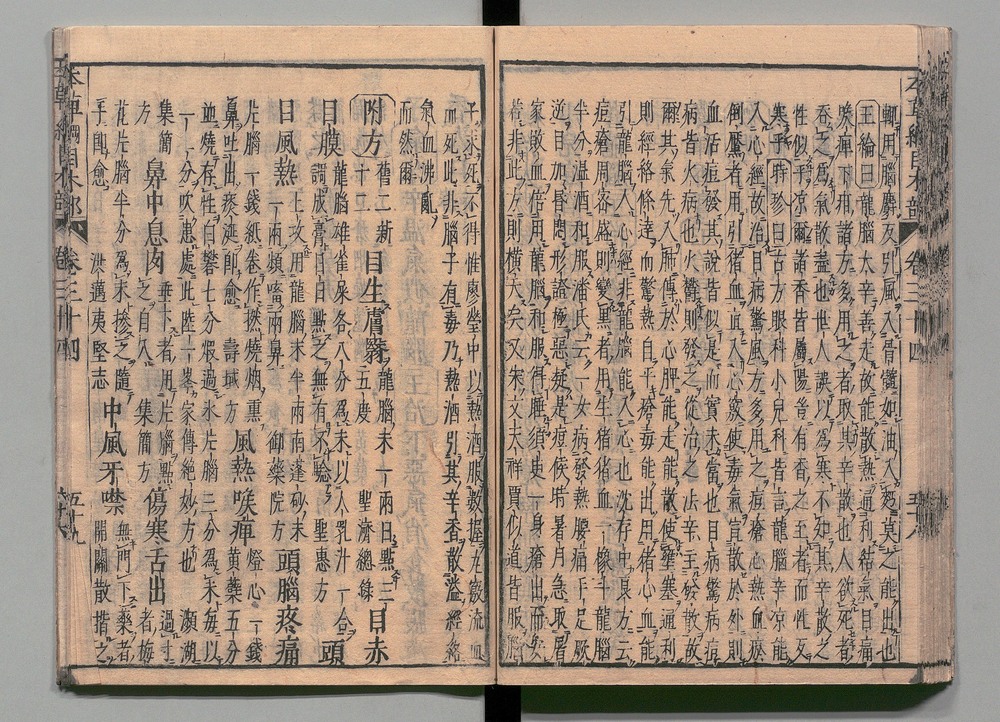 輒用腦麝反引風入骨髓如油入麪莫之能出也
王綸曰龍腦大辛善走故能散熱通利結氣目痛
喉痺下疳諸方多用之者取其辛散也人欲死者
吞之爲氣散盡也世人誤以爲寒不知其辛散之
性似乎凉爾諸香皆屬陽豈有香之至者而性反
寒乎 時珍曰古方眼科小兒科皆言龍腦辛凉能
入心經故治目病驚風方多用之痘瘡心熱血瘀
倒黶者用引猪血直入心竅使毒氣宣散於外則
血活痘發其說皆似是而實未當也目病驚病痘
病皆火病也火鬱則發之從治之法辛主發散故
爾其氣先入肺傳於心脾能走能散使壅塞通利
則經絡條達而驚熱自平瘡毒能出用猪心血能
引龍腦入心經非龍腦能入心也沈存中良方云
痘瘡用客盛則變黑者用生猪猪血一橡斗龍腦
半分溫酒和服潘氏云一女病發熱腰痛手足厥
逆目加昏悶形證極惡疑是痘候時暑月急取屠
家敗血倍用龍腦和服得睡須臾一身瘡出而安
若非此方則橫夭矣又宋文天祥賈似道皆服腦
子求死不得惟廖瑩中以熱酒服數握九竅流血
而死此非腦子有毒乃熱酒引其辛香散溢經絡
氣血沸亂
而然爾
附方 舊二新十二 目生膚翳 龍腦末一兩日點三五度 聖濟總錄 目赤
目膜 龍腦雄雀屎各八分爲末以人乳汁一合調成膏日日點之無有不驗 聖惠方 頭
目風熱 上攻用龍腦末半兩南蓬砂末一兩頻㗜兩鼻 御藥院方 頭腦疼痛
片腦一錢紙卷作撚燒烟熏鼻吐出痰涎卽愈 壽域方 風熱喉痺 燈心一錢黃蘗五分
並燒存性白礬七分煅過氷片腦三分爲末每以
一二分吹患處此陸一峯家傳絕妙方也 瀕湖
集簡方 鼻中息肉 垂下者用片腦點之自入 集簡方 傷寒舌出 過寸者梅
花片腦半分爲末摻之隨手卽愈 洪邁夷堅志 中風牙噤 無門下藥者開關散揩之
本草綱目木部 卷三十四
五十八
本草綱目木部 卷三十四
五十九